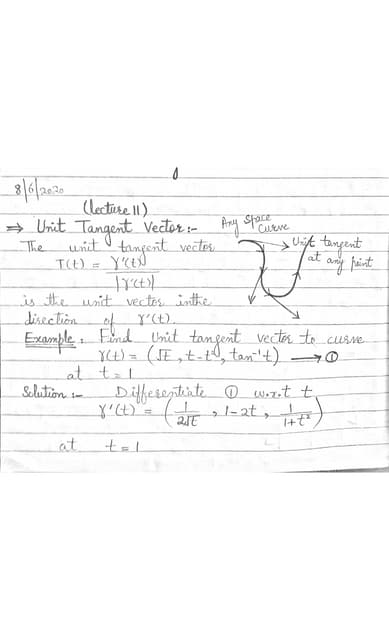 8/6/2020
(lecture 11)
⇒ Unit Tangent Vector :-
Any Space Curve
The unit tangent vector
→ Unit tangent at any point
T(t) = γ'(t) / |γ'(t)|
is the unit vector in the
direction of γ'(t).
Example: Find Unit tangent vector to curve
γ(t) = (√t , t-t², tan⁻¹t) → ①
at t = 1
Solution :- Differentiate ① w.r.t t
γ'(t) = (1/2√t , 1-2t , 1/1+t²)
at t = 1